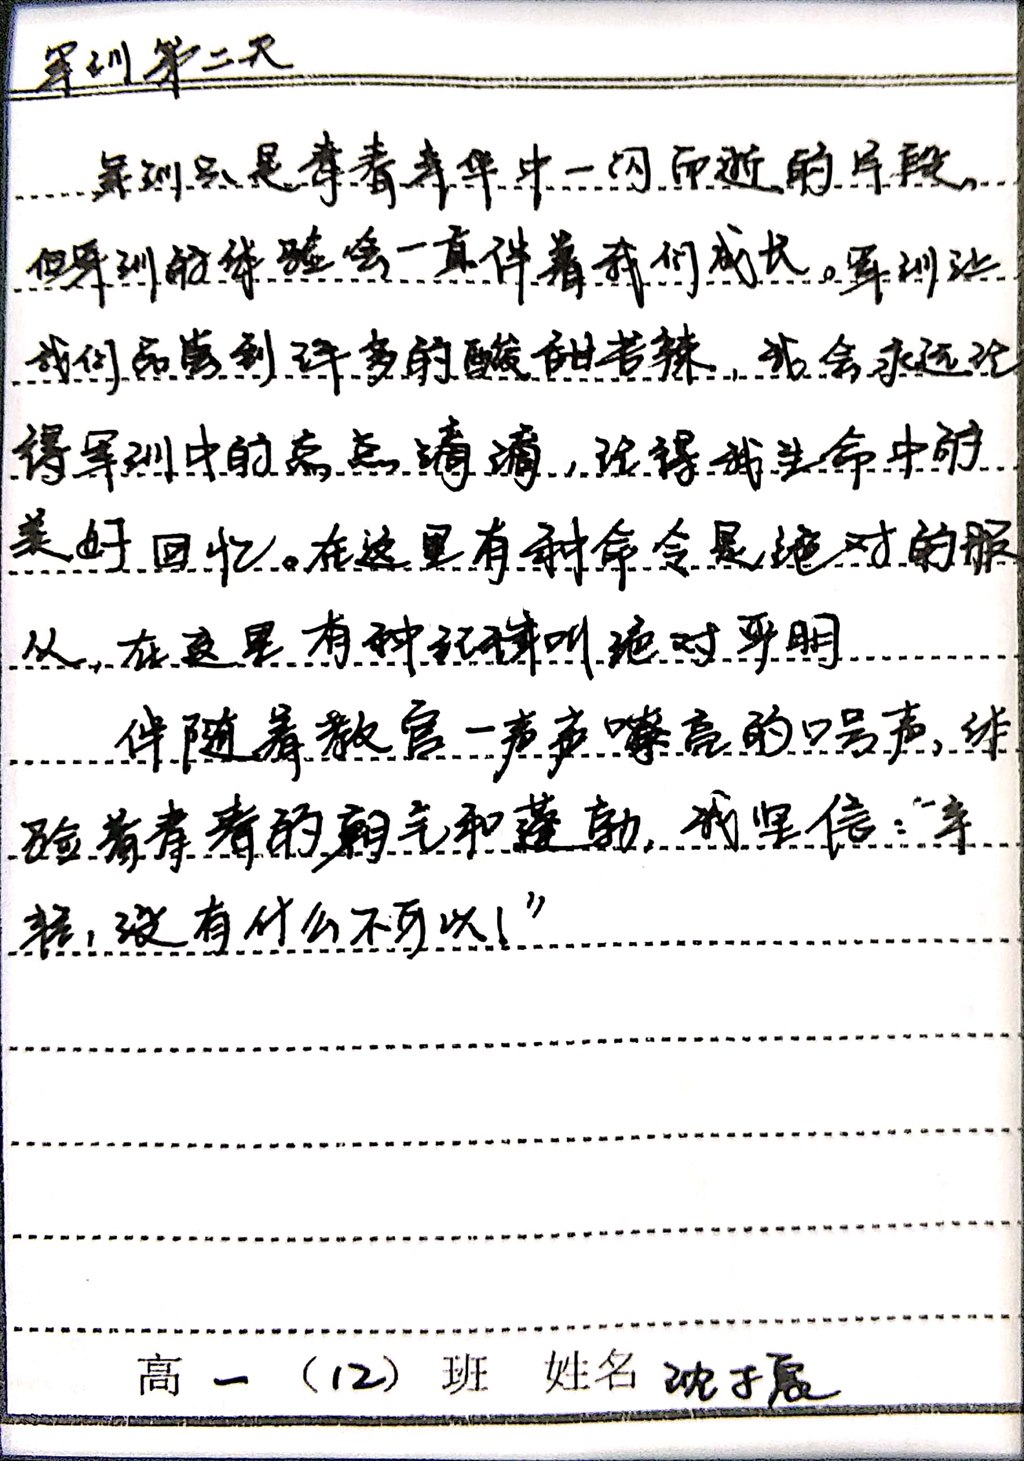 军训第二天
军训只是青春年华中一闪而逝的片段,
但军训的体验会一直伴着我们成长。军训让
我们品尝到许多的酸甜苦辣,我会永远记
得军训中的点点滴滴,记得我生命中的
美好回忆。在这里有种命令是绝对的服
从,在这里有种纪律叫绝对严明
伴随着教官一声声嘹亮的口号声,体
验着青春的朝气和蓬勃,我坚信:“年
轻,没有什么不可以!”
高一(12)班 姓名 沈子